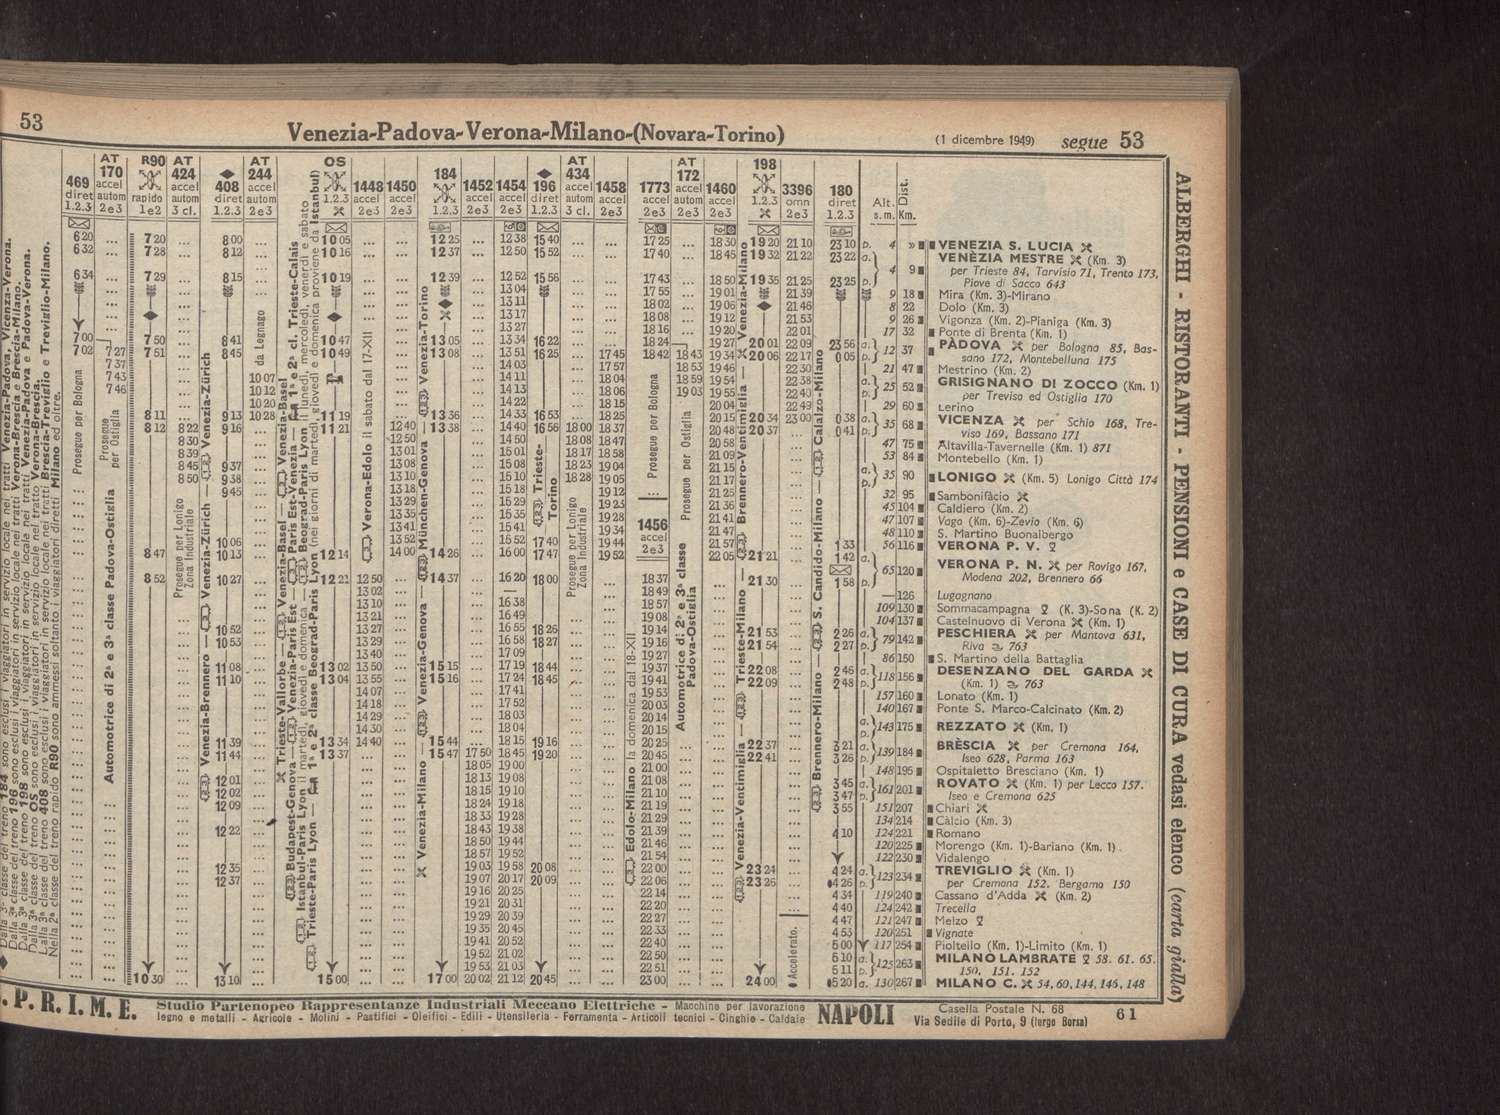 53
Venezia-Padova-Verona-Milano-(Novara-Torino)
(1 dicembre 1949) segue 53
469 diret 1.2.3
AT 170 accel autom 2e3
R90 rapido 1e2
AT 424 accel autom 3 cl.
408 diret 1.2.3
AT 244 accel autom 2e3
OS 1.2.3
1448 accel 2e3
1450 accel 2e3
184 1.2.3
1452 accel 2e3
1454 accel 2e3
196 diret 1.2.3
AT 434 accel autom 3 cl.
1458 accel 2e3
1773 accel 2e3
AT 172 accel autom 2e3
1460 accel 2e3
198 1.2.3
3396 omn 2e3
180 diret 1.2.3
Alt. s. m.
Dist. Km.
6 20 ... 7 20 ... 8 00 ... 10 05 ... ... 12 25 ... 12 38 15 40 ... ... 17 25 ... 18 30 19 20 21 10 23 10 p. 4 » VENEZIA S. LUCIA
6 32 ... 7 28 ... 8 12 ... 10 16 ... ... 12 37 ... 12 50 15 52 ... ... 17 40 ... 18 45 19 32 21 22 23 22 a. VENÈZIA MESTRE (Km. 3)
6 34 ... 7 29 ... 8 15 ... 10 19 ... ... 12 39 ... 12 52 15 56 ... ... 17 43 ... 18 50 19 35 21 25 23 25 p. 4 9 per Trieste 84, Tarvisio 71, Trento 173,
Piove di Sacco 643
13 04 17 55 19 01 21 39 9 18 Mira (Km. 3)-Mirano
13 11 18 02 19 06 21 46 8 22 Dolo (Km. 3)
13 17 18 08 19 12 21 53 9 26 Vigonza (Km. 2)-Pianiga (Km. 3)
13 27 18 16 19 20 22 01 17 32 Ponte di Brenta (Km. 1)
7 00 7 50 8 41 10 47 13 05 13 34 16 22 18 24 19 27 20 01 22 09 23 56 a. PÀDOVA per Bologna 85, Bas-
7 02 7 27 7 51 8 45 10 49 13 08 13 51 16 25 17 45 18 42 18 43 19 34 20 06 22 17 0 05 p. 12 37 sano 172, Montebelluna 175
7 37 14 03 17 57 18 53 19 46 22 30 21 47 Mestrino (Km. 2)
7 43 10 07 14 11 18 04 18 59 19 54 22 38 a. GRISIGNANO DI ZOCCO (Km. 1)
7 46 10 12 14 13 18 06 19 03 19 55 22 40 p. 25 52 per Treviso ed Ostiglia 170
10 20 14 22 18 15 20 04 22 49 29 60 Lerino
8 11 9 13 10 28 11 19 13 36 14 33 16 53 18 25 20 15 20 34 23 00 0 38 a. VICENZA per Schio 168, Tre-
8 12 8 22 9 16 11 21 12 40 13 38 14 40 16 56 18 00 18 37 20 48 20 37 0 41 p. 35 68 viso 169, Bassano 171
8 30 12 50 14 50 18 08 18 47 20 58 47 75 Altavilla-Tavernelle (Km. 1) 871
8 39 13 01 15 01 18 17 18 58 21 09 53 84 Montebello (Km. 1)
8 45 9 37 13 08 15 08 18 23 19 04 21 15 a.
8 50 9 38 13 10 15 10 18 28 19 05 21 17 p. 35 90 LONIGO (Km. 5) Lonigo Città 174
9 45 13 18 15 18 19 12 21 25 32 95 Sambonifàcio
13 29 15 29 19 23 21 36 45 104 Caldiero (Km. 2)
13 35 15 35 19 28 21 41 47 107 Vago (Km. 6)-Zevio (Km. 6)
13 41 15 41 19 34 21 47 48 110 S. Martino Buonalbergo
10 06 13 52 15 52 17 40 19 44 21 57 1 33 56 116 VERONA P. V.
8 47 10 13 12 14 14 00 14 26 16 00 17 47 19 52 22 05 21 21 1 42 a. VERONA P. N. per Rovigo 167,
1456 accel 2e3
8 52 10 27 12 21 12 50 14 37 16 20 18 00 18 37 21 30 1 58 p. 65 120 Modena 202, Brennero 66
13 02 — 18 49 — 126 Lugognano
13 10 16 38 18 57 109 130 Sommacampagna (K. 3)-Sona (K. 2)
13 21 16 49 19 08 104 137 Castelnuovo di Verona (Km. 1)
10 52 13 27 16 55 18 26 19 14 21 53 2 26 a. PESCHIERA per Mantova 631,
10 53 13 29 16 58 18 27 19 16 21 54 2 27 p. 79 142 Riva 763
13 40 17 09 19 27 86 150 S. Martino della Battaglia
11 08 13 02 13 50 15 15 17 19 18 44 19 37 22 08 2 46 a. DESENZANO DEL GARDA
11 10 13 04 13 55 15 16 17 24 18 45 19 41 22 09 2 48 p. 118 156 (Km. 1) 763
14 07 17 41 19 53 157 160 Lonato (Km. 1)
14 18 17 52 20 03 140 167 Ponte S. Marco-Calcinato (Km. 2)
14 29 18 03 20 14 a.
14 30 18 04 20 15 p. 143 175 REZZATO (Km. 1)
11 39 13 34 14 40 15 44 18 15 19 16 20 25 22 37 3 21 a. BRÈSCIA per Cremona 164,
11 44 13 37 15 47 17 50 18 45 19 20 20 45 22 41 3 26 p. 139 184 Iseo 628, Parma 163
18 05 19 00 21 00 148 195 Ospitaletto Bresciano (Km. 1)
12 01 18 13 19 08 21 08 3 45 a. ROVATO (Km. 1) per Lecco 157.
12 02 18 15 19 10 21 10 3 47 p. 161 201 Iseo e Cremona 625
12 09 18 24 19 18 21 19 3 55 151 207 Chiari
18 33 19 28 21 29 134 214 Càlcio (Km. 3)
12 22 18 43 19 38 21 39 4 10 124 221 Romano
18 50 19 44 21 46 120 225 Morengo (Km. 1)-Bariano (Km. 1)
18 57 19 52 21 54 122 230 Vidalengo
12 35 19 03 19 58 20 08 22 00 23 24 4 24 a. TREVIGLIO (Km. 1)
12 37 19 07 20 17 20 09 22 06 23 26 4 26 p. 123 234 per Cremona 152. Bergamo 150
19 16 20 25 22 14 4 34 119 240 Cassano d'Adda (Km. 2)
19 21 20 31 22 20 4 40 124 242 Trecella
19 29 20 39 22 27 4 47 121 247 Melzo
19 35 20 45 22 33 4 53 120 251 Vignate
19 41 20 52 22 40 5 00 117 254 Pioltello (Km. 1)-Limito (Km. 1)
19 52 21 02 22 50 5 10 a. MILANO LAMBRATE 58. 61. 65.
19 53 21 03 22 51 5 11 p. 125 263 150. 151. 152
10 30 13 10 15 00 17 00 20 02 21 12 20 45 23 00 24 00 5 20 a. 130 267 MILANO C. 54, 60, 144, 145, 148
Prosegue per Bologna
Prosegue per Ostiglia
Automotrice di 2ª e 3ª classe Padova-Ostiglia
Prosegue per Lonigo Zona Industriale
Venezia-Brennero — Venezia-Zürich — Venezia-Zürich
da Legnago
Trieste-Vallorbe — Venezia-Basel — Venezia-Basel
Budapest-Genova — Venezia-Paris Est — Venezia-Paris Est-Venezia — 1ª e 2ª cl. Trieste-Calais
Istanbul-Paris Lyon il martedì, giovedì e domenica — Beograd-Paris Lyon il lunedì, mercoledì, venerdì e sabato
Trieste-Paris Lyon — 1ª e 2ª classe Beograd-Paris Lyon (nei giorni di martedì, giovedì e domenica proviene da Istanbul)
Verona-Edolo il sabato dal 17-XII
Venezia-Milano — Venezia-Genova — München-Genova — Venezia-Torino
Trieste-Torino
Prosegue per Lonigo Zona Industriale
Prosegue per Bologna
Edolo-Milano la domenica dal 18-XII
Prosegue per Ostiglia
Automotrice di 2ª e 3ª classe Padova-Ostiglia
Venezia-Ventimiglia — Trieste-Milano — Brennero-Ventimiglia — Venezia-Milano
Accelerato.
Brennero-Milano — S. Candido-Milano — Calalzo-Milano
Dalla 3ª classe del treno 184 sono esclusi i viaggiatori in servizio locale nei tratti Venezia-Padova, Vicenza-Verona.
Dalla 3ª classe del treno 196 sono esclusi i viaggiatori in servizio locale nei tratti Verona-Brescia e Brescia-Milano.
Dalla 3ª classe del treno 198 sono esclusi i viaggiatori in servizio locale nei tratti Venezia-Padova e Padova-Verona.
Dalla 3ª classe del treno OS sono esclusi i viaggiatori in servizio locale nel tratto Verona-Brescia.
Dalla 3ª classe del treno 408 sono esclusi i viaggiatori in servizio locale nei tratti Brescia-Treviglio e Treviglio-Milano.
Nella 2ª classe del treno rapido R90 sono ammessi soltanto i viaggiatori diretti Milano ed oltre.
ALBERGHI - RISTORANTI - PENSIONI e CASE DI CURA vedasi elenco (carta gialla)
. P. R. I. M. E.
Studio Partenopeo Rappresentanze Industriali Meccano Elettriche - Macchine per lavorazione
legno e metalli - Agricole - Molini - Pastifici - Oleifici - Edili - Utensileria - Ferramenta - Articoli tecnici - Cinghie - Caldaie
NAPOLI
Casella Postale N. 68
Via Sedile di Porto, 9 (lergo Borsa)
61